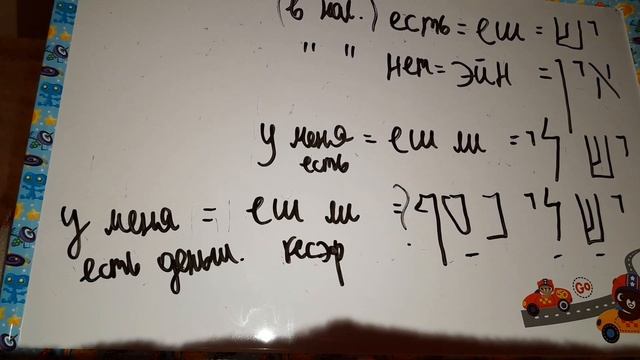 (в нал.) есть = еш = יש
" " нет = эйн = אין
у меня есть = еш ли = יש לי
у меня есть деньги. = еш ли кесэф = יש לי כסף
Go